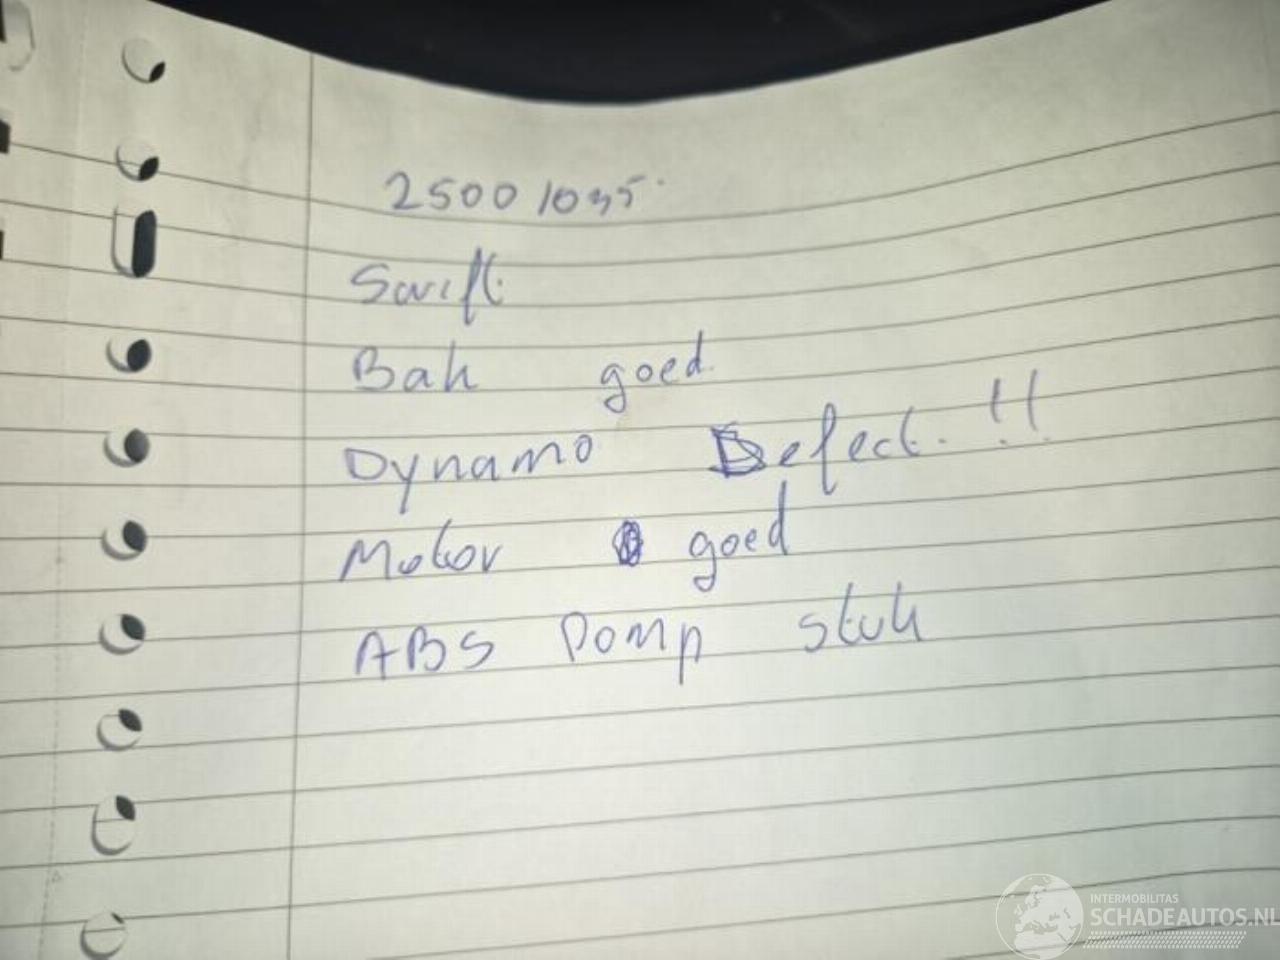 2500 1035.
Swift
Bak goed.
Dynamo Defect. !!
Motor goed
ABS Pomp stuk
INTERMOBILITAS
SCHADEAUTOS.NL